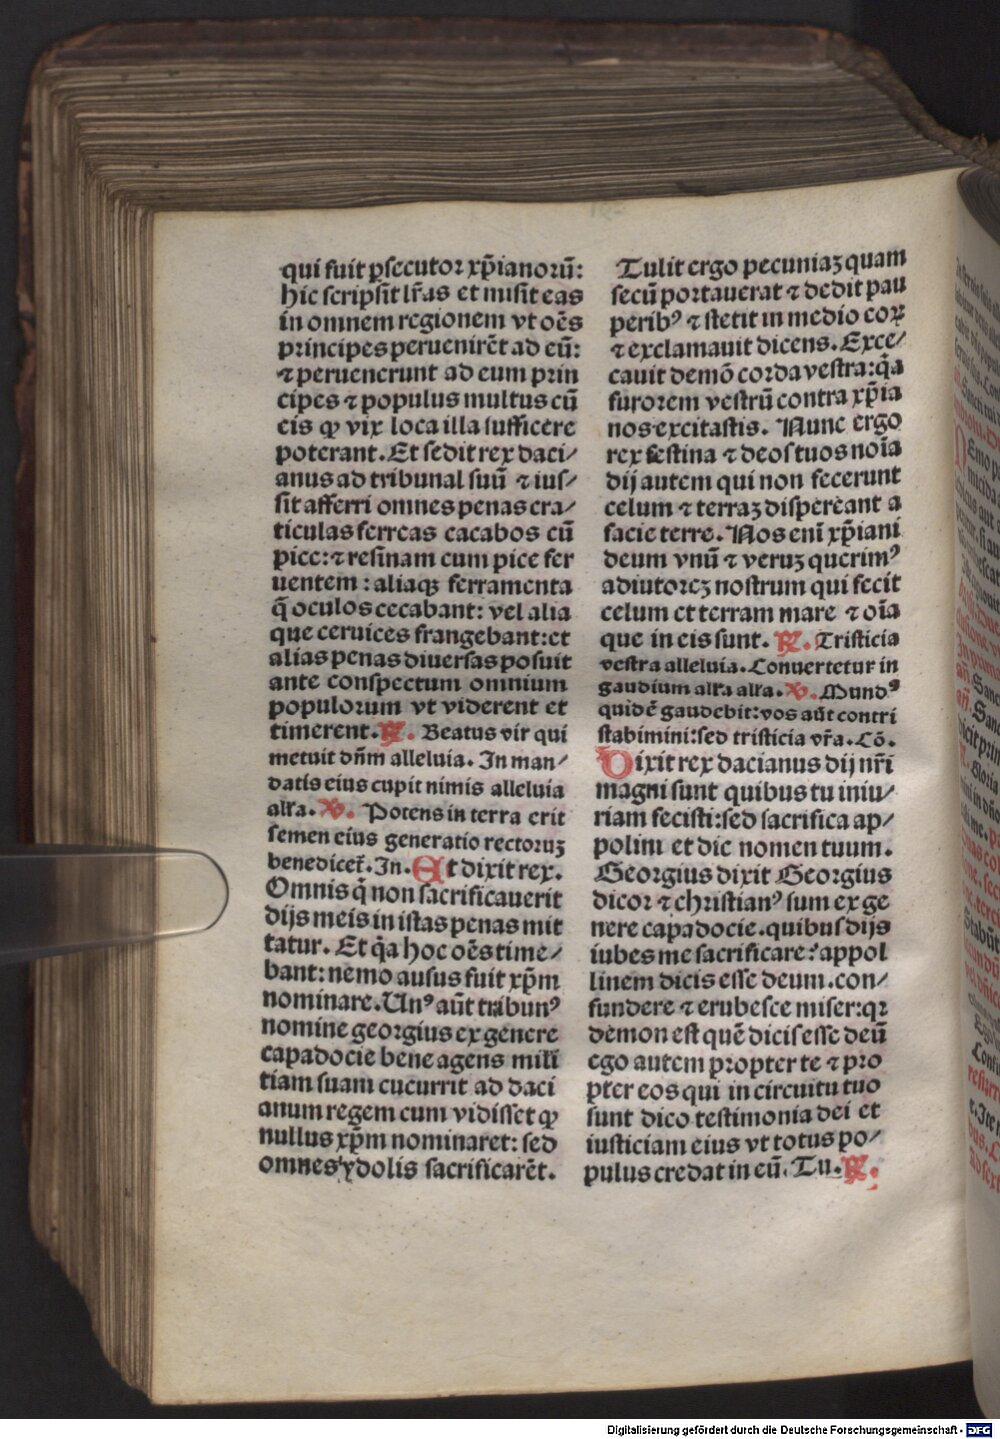 qui fuit ꝑsecutor xp̃ianorũ:
hic scripsit lr̃as et misit eas
in omnem regionem vt oẽs
principes peruenirẽt ad eũ:
⁊ peruenerunt ad eum prin
cipes ⁊ populus multus cũ
eis ꝙ vix loca illa sufficere
poterant. Et sedit rex daci/
anus ad tribunal suũ ⁊ ius/
sit afferri omnes penas cra/
ticulas ferreas cacabos cũ
pice: ⁊ resinam cum pice fer
uentem: aliaqꝫ ferramenta
q̃ oculos cecabant: vel alia
que ceruices frangebant: et
alias penas diuersas posuit
ante conspectum omnium
populorum vt viderent et
timerent. ℟. Beatus vir qui
metuit dñm alleluia. In man/
datis eius cupit nimis alleluia
alľa. ℣. Potens in terra erit
semen eius generatio rectoruꝫ
benedicet̃. In. Et dixit rex.
Omnis q̃ non sacrificauerit
dijs meis in istas penas mit
tatur. Et q̃a hoc oẽs time/
bant: nemo ausus fuit xp̃m
nominare. Unꝰ aũt tribunꝰ
nomine georgius ex genere
capadocie bene agens mili
tiam suam cucurrit ad daci
anum regem cum vidisset ꝙ
nullus xp̃m nominaret: sed
omnes ydolis sacrificarẽt.
Tulit ergo pecuniaꝫ quam
secũ portauerat ⁊ dedit pau
peribꝰ ⁊ stetit in medio coꝝ
⁊ exclamauit dicens. Exce/
cauit demõ corda vestra: q̃a
furorem vestrũ contra xp̃ia
nos excitastis. Nunc ergo
rex festina ⁊ deos tuos noĩa
dij autem qui non fecerunt
celum ⁊ terraꝫ dispereant a
facie terre. Nos eni xp̃iani
deum vnũ ⁊ veruꝫ querimꝰ
adiutoreꝫ nostrum qui fecit
celum et terram mare ⁊ oĩa
que in eis sunt. ℟. Tristicia
vestra alleluia. Conuertetur in
gaudium alľa alľa. ℣. Mundꝰ
quidẽ gaudebit: vos aũt contri
stabimini: sed tristicia vr̃a. Cõ.
Dixit rex dacianus dij nr̃i
magni sunt quibus tu iniu/
riam fecisti: sed sacrifica ap/
polini et dic nomen tuum.
Georgius dixit Georgius
dicor ⁊ christianꝰ sum ex ge
nere capadocie. quibus dijs
iubes me sacrificare? appol
linem dicis esse deum. con/
fundere ⁊ erubesce miser: qꝛ
demon est quẽ dicis esse deũ
ego autem propter te ⁊ pro
pter eos qui in circuitu tuo
sunt dico testimonia dei et
iusticiam eius vt totus po/
pulus credat in eũ. Tu. ℟.
Digitalisierung gefördert durch die Deutsche Forschungsgemeinschaft - DFG